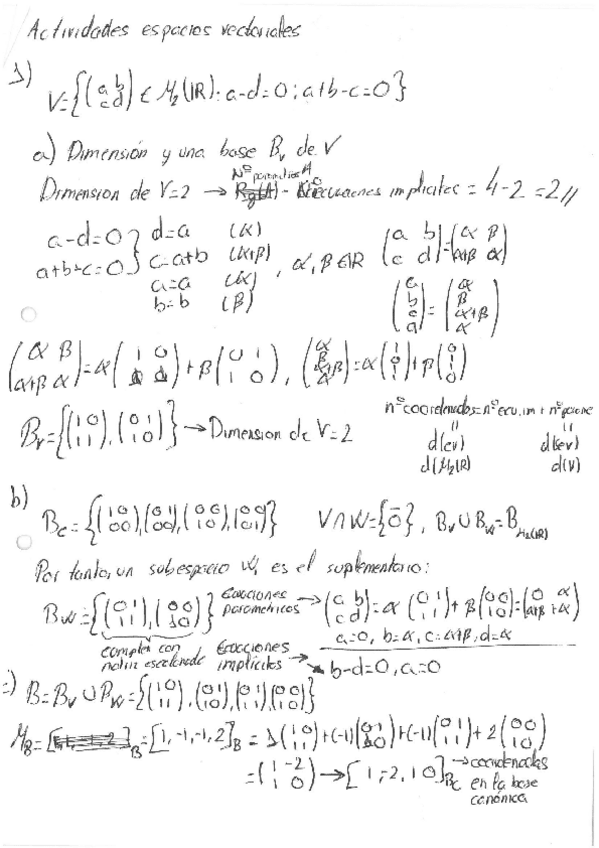 Actividades espacios vectoriales
1)
V={(a b; c d) ∈ M₂(IR): a-d=0; a+b-c=0}
a) Dimensión y una base Bᵥ de V
Nº parametros
Dimension de V=2 → - Nº ecuaciones implicitas = 4-2 =2//
a-d=0 } d=a (α)
a+b-c=0 } c=a+b (α+β) , α, β ∈ IR (a b; c d)=(α β; α+β α)
a=a (α)
b=b (β) (a; b; c; a)=(α; β; α+β; α)
(α β; α+β α)=α(1 0; 1 1)+β(0 1; 1 0), (α; β; α+β; α)=α(1; 0; 1; 1)+β(0; 1; 1; 0)
Bᵥ={(1 0; 1 1),(0 1; 1 0)} → Dimension de V=2
nºcoordenadas=nºecu.im+nºparame
d(ev) d(sev)
d(M₂(IR)) d(V)
b)
B_C={(1 0; 0 0),(0 1; 0 0),(0 0; 1 0),(0 0; 0 1)} V∩W={0̄}, Bᵥ∪B_W=B_M₂(IR)
Por tanto, un subespacio W, es el suplementario:
B_W={(0 1; 1 1),(0 0; 1 0)} Ecuaciones parametricas → (a b; c d)=α(0 1; 1 1)+β(0 0; 1 0)=(0 α; α+β α)
a=0, b=α, c=α+β, d=α
completar con matriz escalonada Ecuaciones implicitas → b-d=0, a=0
c) B=Bᵥ∪B_W={(1 0; 1 1),(0 1; 1 0),(0 1; 1 1),(0 0; 1 0)}
M_B=[1,-1,-1,2]_B = 1(1 0; 1 1)+(-1)(0 1; 1 0)+(-1)(0 1; 1 1)+2(0 0; 1 0)
=(1 -2; 1 0)→[1,-2,1 0]_BC → coordenadas
en la base
canónica